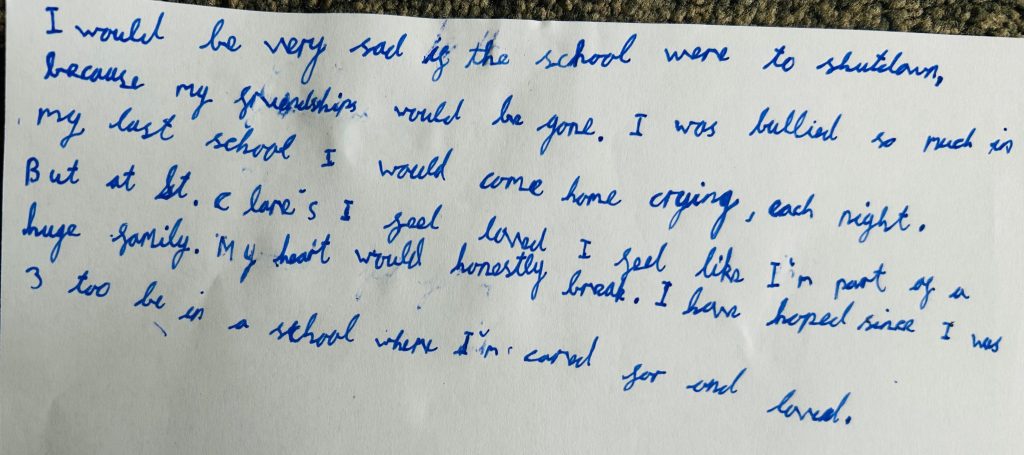 I would be very sad if the school were to shutdown,
because my friendships would be gone. I was bullied so much in
my last school I would come home crying, each night.
But at St. Clare's I feel loved I feel like I'm part of a
huge family. My heart would honestly break. I have hoped since I was
3 too be in a school where I'm cared for and loved.